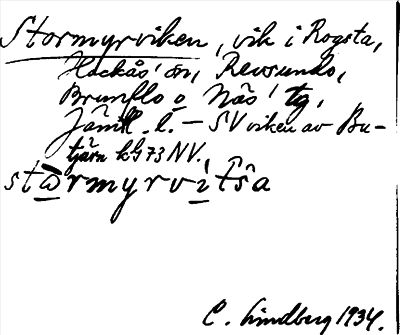 Stormyrviken, vik i Rogsta,
Hackås' sn, Revsunds,
Brunflo o Näs' tg,
Jämtl. l. – SV viken av Bu-
tjärn kG 73 NV.
stårmyrvitša
C. Lindberg 1934.